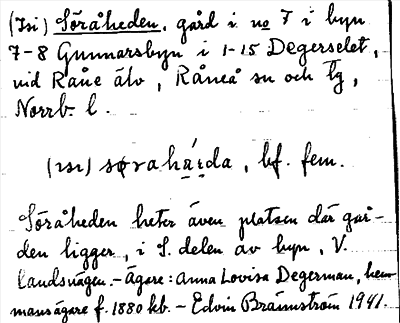 (Isi) Söråheden, gård i no 7 i byn
7-8 Gunnarsbyn i 1-15 Degerselet,
vid Råne älv, Råneå sn och tg,
Norrb. l.
(ısı) søraha̤rda, bf. fem.
Söråheden heter även platsen där går-
den ligger, i S. delen av byn, V.
landsvägen. - Ägare: Anna Lovisa Degerman, hem
mansägare f. 1880 kb. - Edvin Brännström 1941.